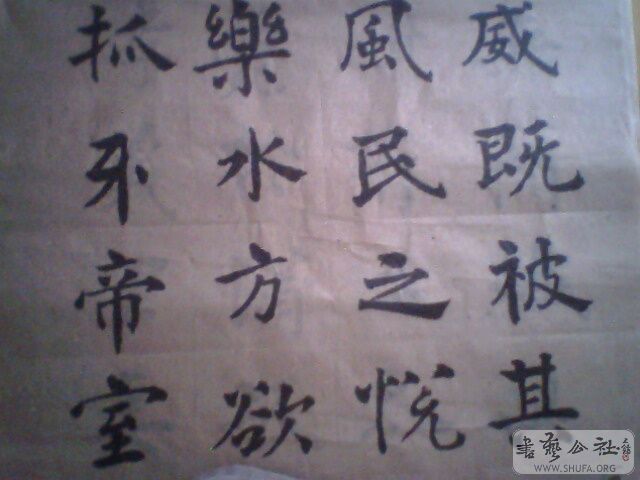 威既被其
風民之悅
樂水方欲
抓牙帝室
書藝公社
WWW.SHUFA.ORG